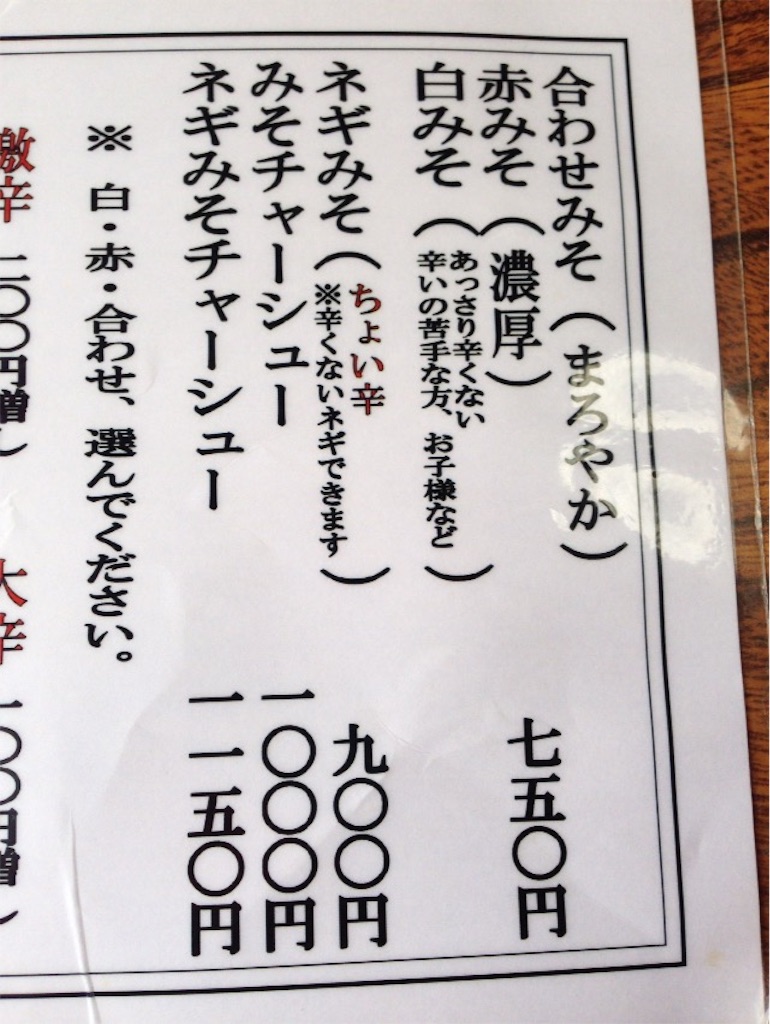 合わせみそ（まろやか）
赤みそ（濃厚）
七五〇円
白みそ（あっさり辛くない
辛いの苦手な方、お子様など）
ネギみそ（ちょい辛
※辛くないネギできます）
九〇〇円
みそチャーシュー
一〇〇〇円
ネギみそチャーシュー
一一五〇円
※ 白・赤・合わせ、選んでください。
激辛 二〇〇円増し
大辛 一〇〇円増し